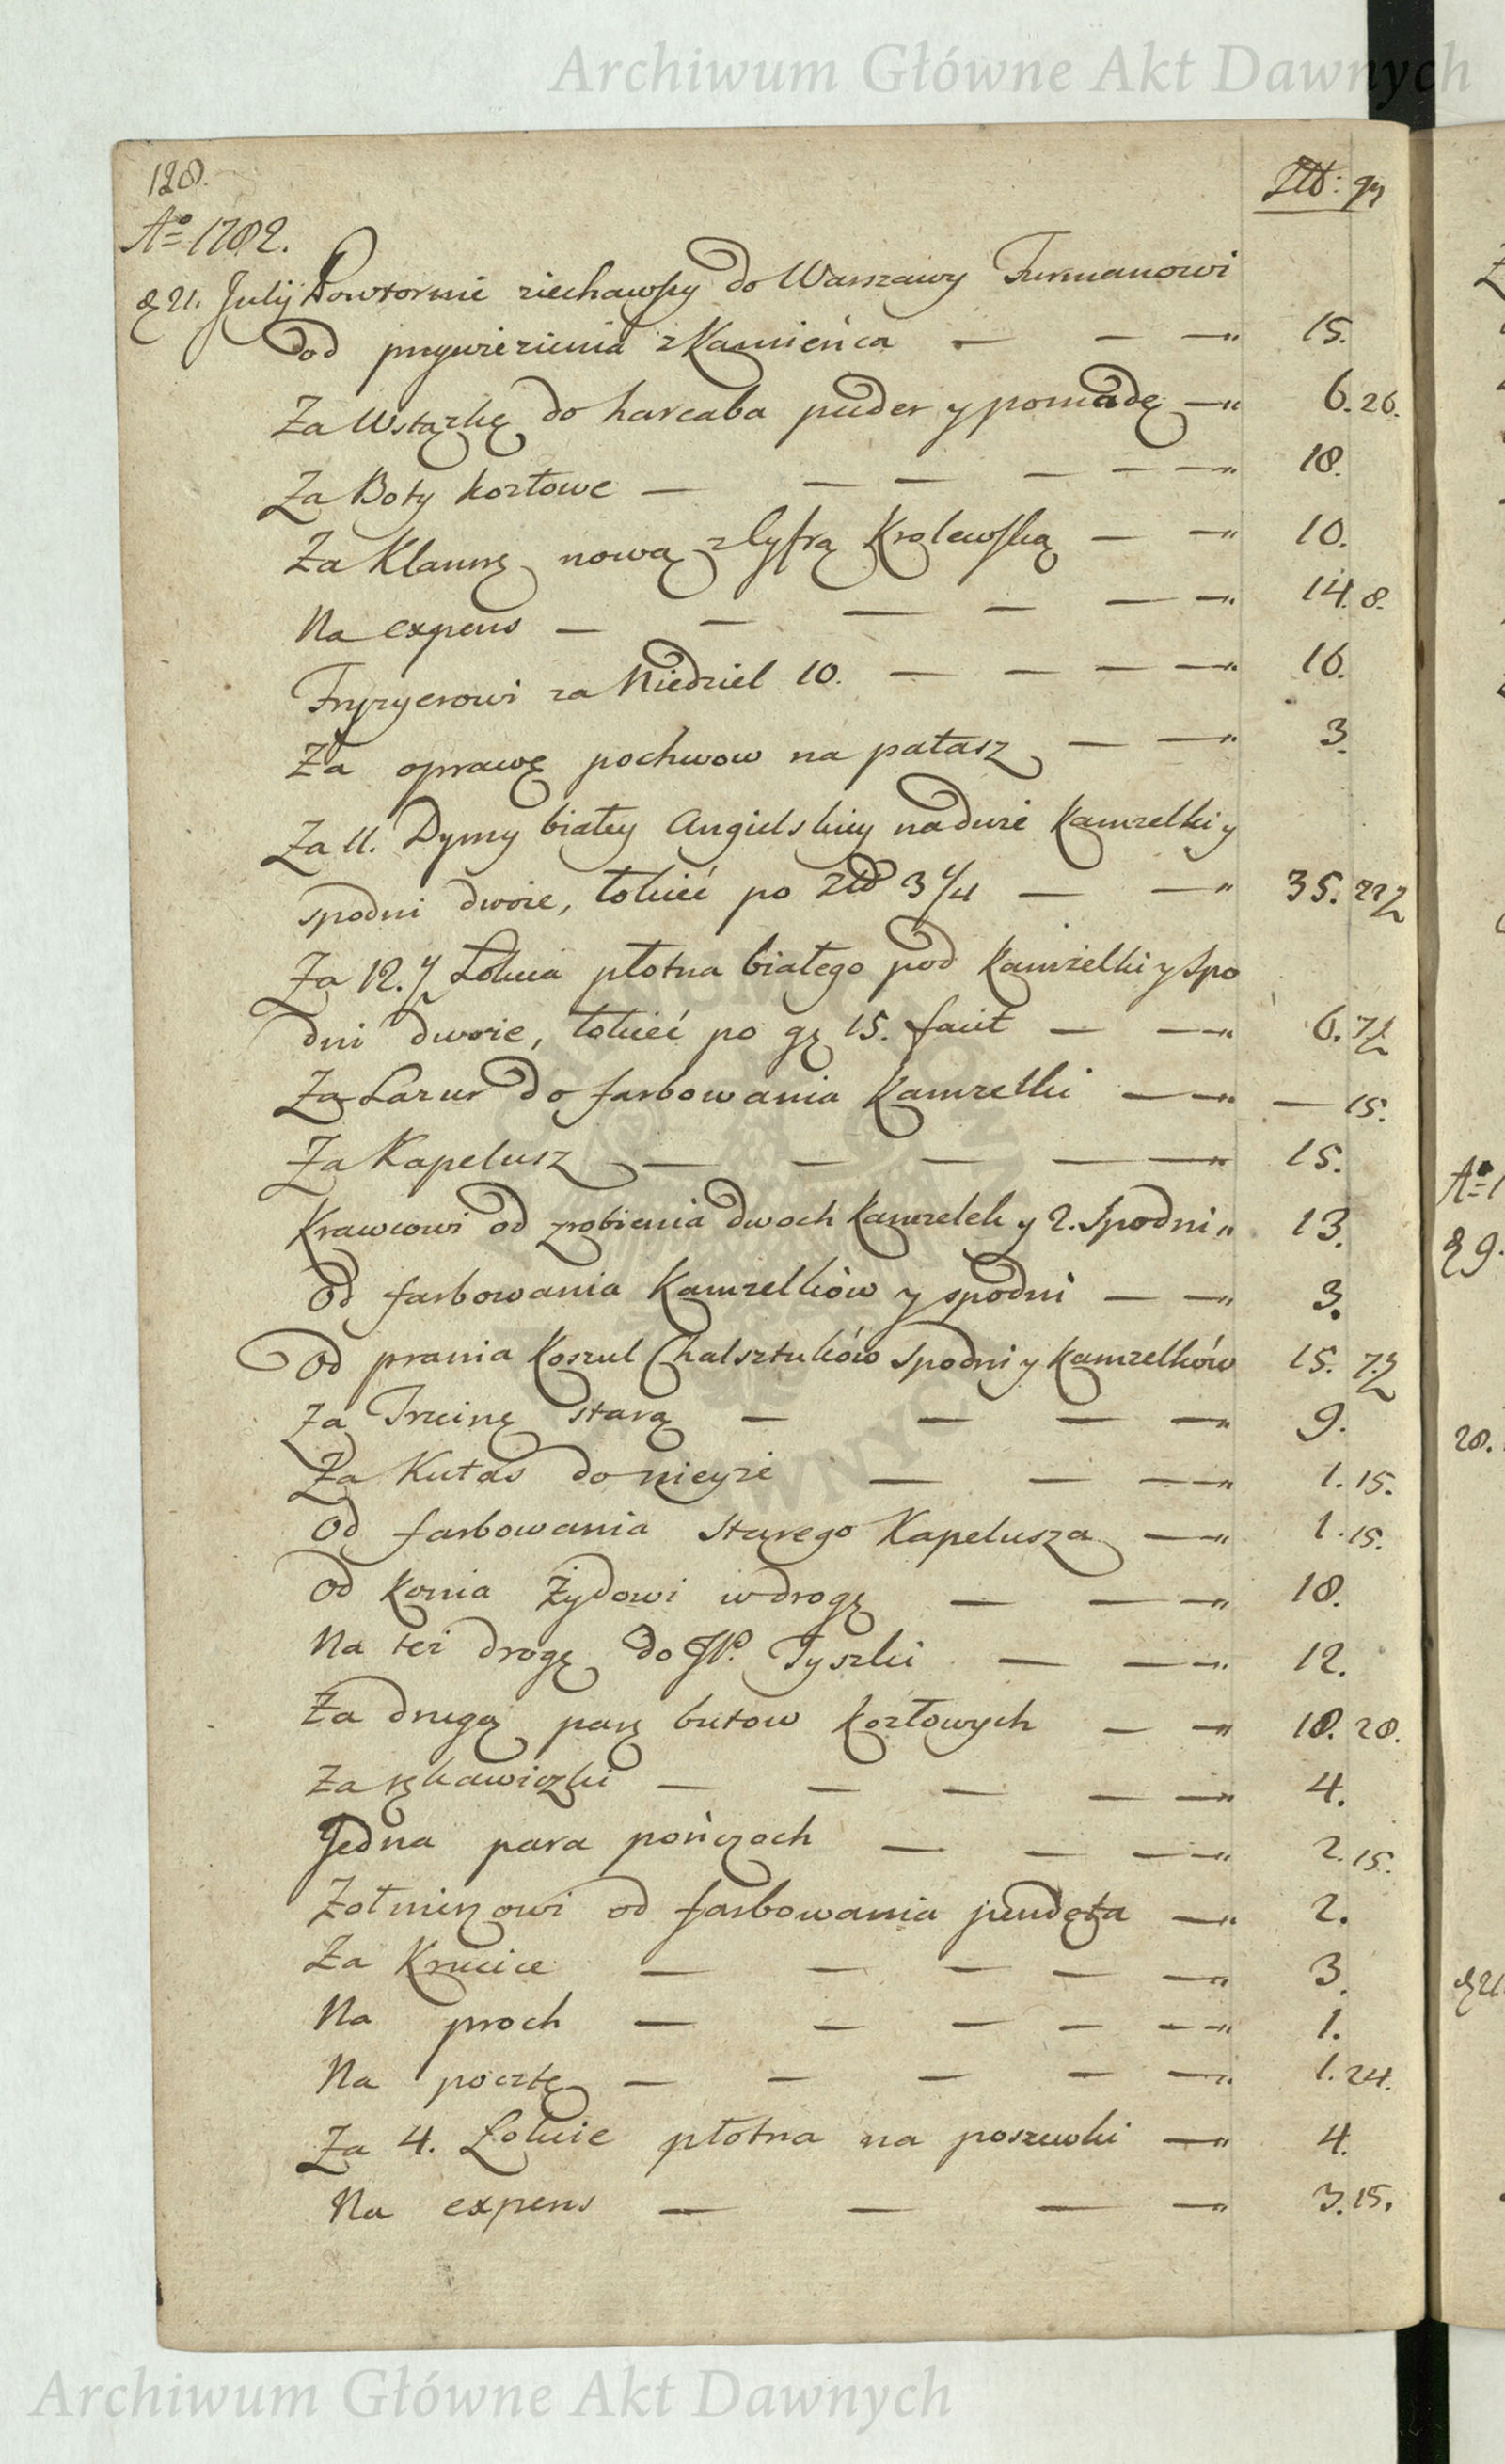 Archiwum Główne Akt Dawnych
128.
Złł: gr
Aº 1782.
d 21. Julij Powtornie ziechawszy do Warszawy Furmanowi
od przywiezienia z Kamieńca — — —„ 15.
Za Wstążkę do harcaba puder y pomadę —„ 6. 26.
Za Boty kozłowe — — — — — —„ 18.
Za Klamrę nową z Cyfrą Krolewską — —„ 10.
Na expens — — — — — —„ 14. 8.
Fryzyerowi za Niedziel 10. — — — —„ 16.
Za oprawę pochwow na pałasz — —„ 3.
Za 11. Dymy białey Angielskiey na dwie Kamzelki y
spodni dwoie, łokieć po Złł 3 1/4 — —„ 35. 22½
Za 12.½ Łokcia płotna białego pod Kamzelki y Spo
dni dwoie, łokieć po gr 15. facit — —„ 6. 7½
Za Lazur do farbowania Kamzelki — —„ — 15.
Za Kapelusz — — — — —„ 15.
Krawcowi od zrobienia dwoch Kamzelek y 2. Spodni „ 13.
Od farbowania Kamzelków y spodni — —„ 3.
Od prania Koszul Chalsztuków Spodni y Kamzelków 15. 7.½
Za Trzcinę starą — — — —„ 9.
Za Kutas do nieyże — — —„ 1. 15.
Od farbowania Starego Kapelusza —„ 1. 15.
Od Konia Żydowi w drogę — — —„ 18.
Na też drogę do JP. Tyszki — — —„ 12.
Za drugą parę butow kozłowych — —„ 18. 28.
Za rękawiczki — — — — —„ 4.
Jedna para pończoch — — — —„ 2. 15.
Żołnierzowi od farbowania pendęta —„ 2.
Za Krucice — — — — —„ 3.
Na proch — — — — — —„ 1.
Na pocztę — — — — —„ 1. 24.
Za 4. Łokcie płotna na poszewki —„ 4.
Na expens — — — —„ 3. 15.
Archiwum Główne Akt Dawnych